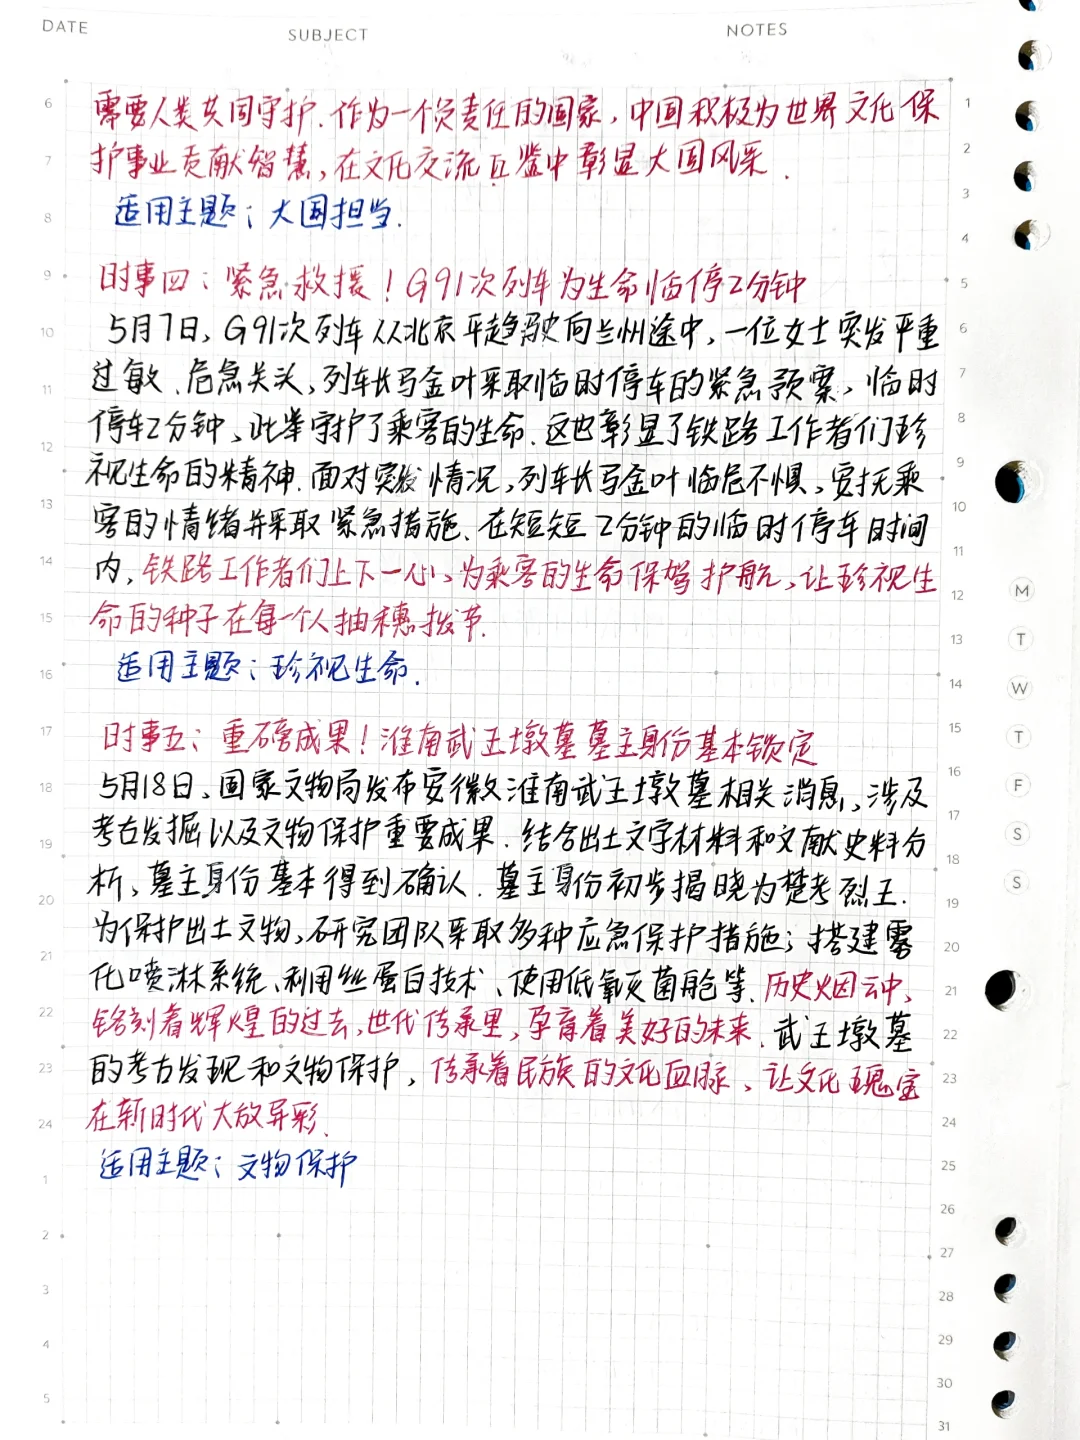 DATE
SUBJECT
NOTES
需要人类共同守护.作为一个负责任的国家,中国积极为世界文化保
护事业贡献智慧,在文化交流互鉴中彰显大国风采.
适用主题:大国担当.
时事四:紧急救援!G91次列车为生命临停2分钟
5月7日,G91次列车从北京丰趋驶向兰州途中,一位女士突发严重
过敏.危急关头,列车长马金叶采取临时停车的紧急预案,临时
停车2分钟,此举守护了乘客的生命.这也彰显了铁路工作者们珍
视生命的精神.面对突发情况,列车长马金叶临危不惧,安抚乘
客的情绪并采取紧急措施.在短短2分钟的临时停车时间
内,铁路工作者们上下一心,为乘客的生命保驾护航,让珍视生
命的种子在每一个人抽穗拔节.
适用主题:珍视生命.
时事五:重磅成果!淮南武王墩墓墓主身份基本锁定
5月18日,国家文物局发布安徽淮南武王墩墓相关消息,涉及
考古发掘以及文物保护重要成果.结合出土文字材料和文献史料分
析,墓主身份基本得到确认.墓主身份初步揭晓为楚考烈王.
为保护出土文物,研究团队采取多种应急保护措施;搭建雾
化喷淋系统、利用丝蛋白技术、使用低氧灭菌舱等.历史烟云中,
铭刻着辉煌的过去,世代传承里,孕育着美好的未来.武王墩墓
的考古发现和文物保护,传承着民族的文化血脉,让文化瑰宝
在新时代大放异彩.
适用主题:文物保护
6
7
8
9
10
11
12
13
14
15
16
17
18
19
20
21
22
23
24
1
2
3
4
5
1
2
3
4
5
6
7
8
9
10
11
12
13
14
15
16
17
18
19
20
21
22
23
24
25
26
27
28
29
30
31
M
T
W
T
F
S
S